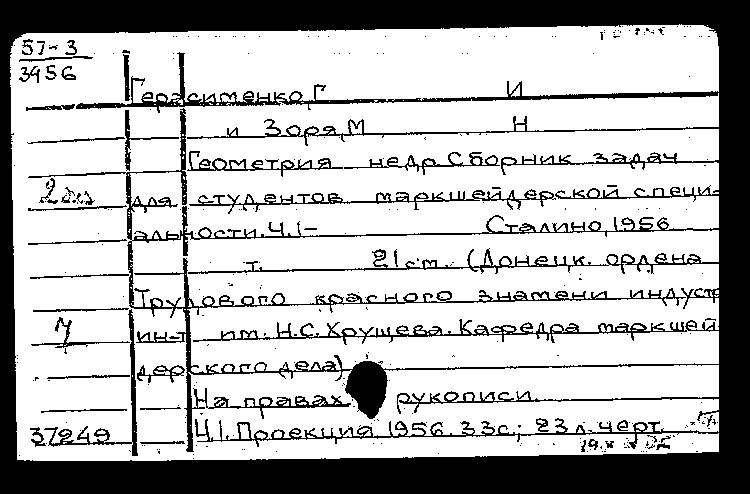 57-3
3456
Герасименко, Г И
и Зоря, М Н
Геометрия недр. Сборник задач
2 экз для студентов маркшейдерской специ-
альности. Ч. I- Сталино, 1956
т. 21 см. (Донецк. ордена
Трудового красного знамени индустр
ин-т им. Н.С. Хрущева. Кафедра маркшей-
дерского дела)
На правах рукописи.
37249 Ч. I. Проекция 1956. 33с.; 23 л. черт.